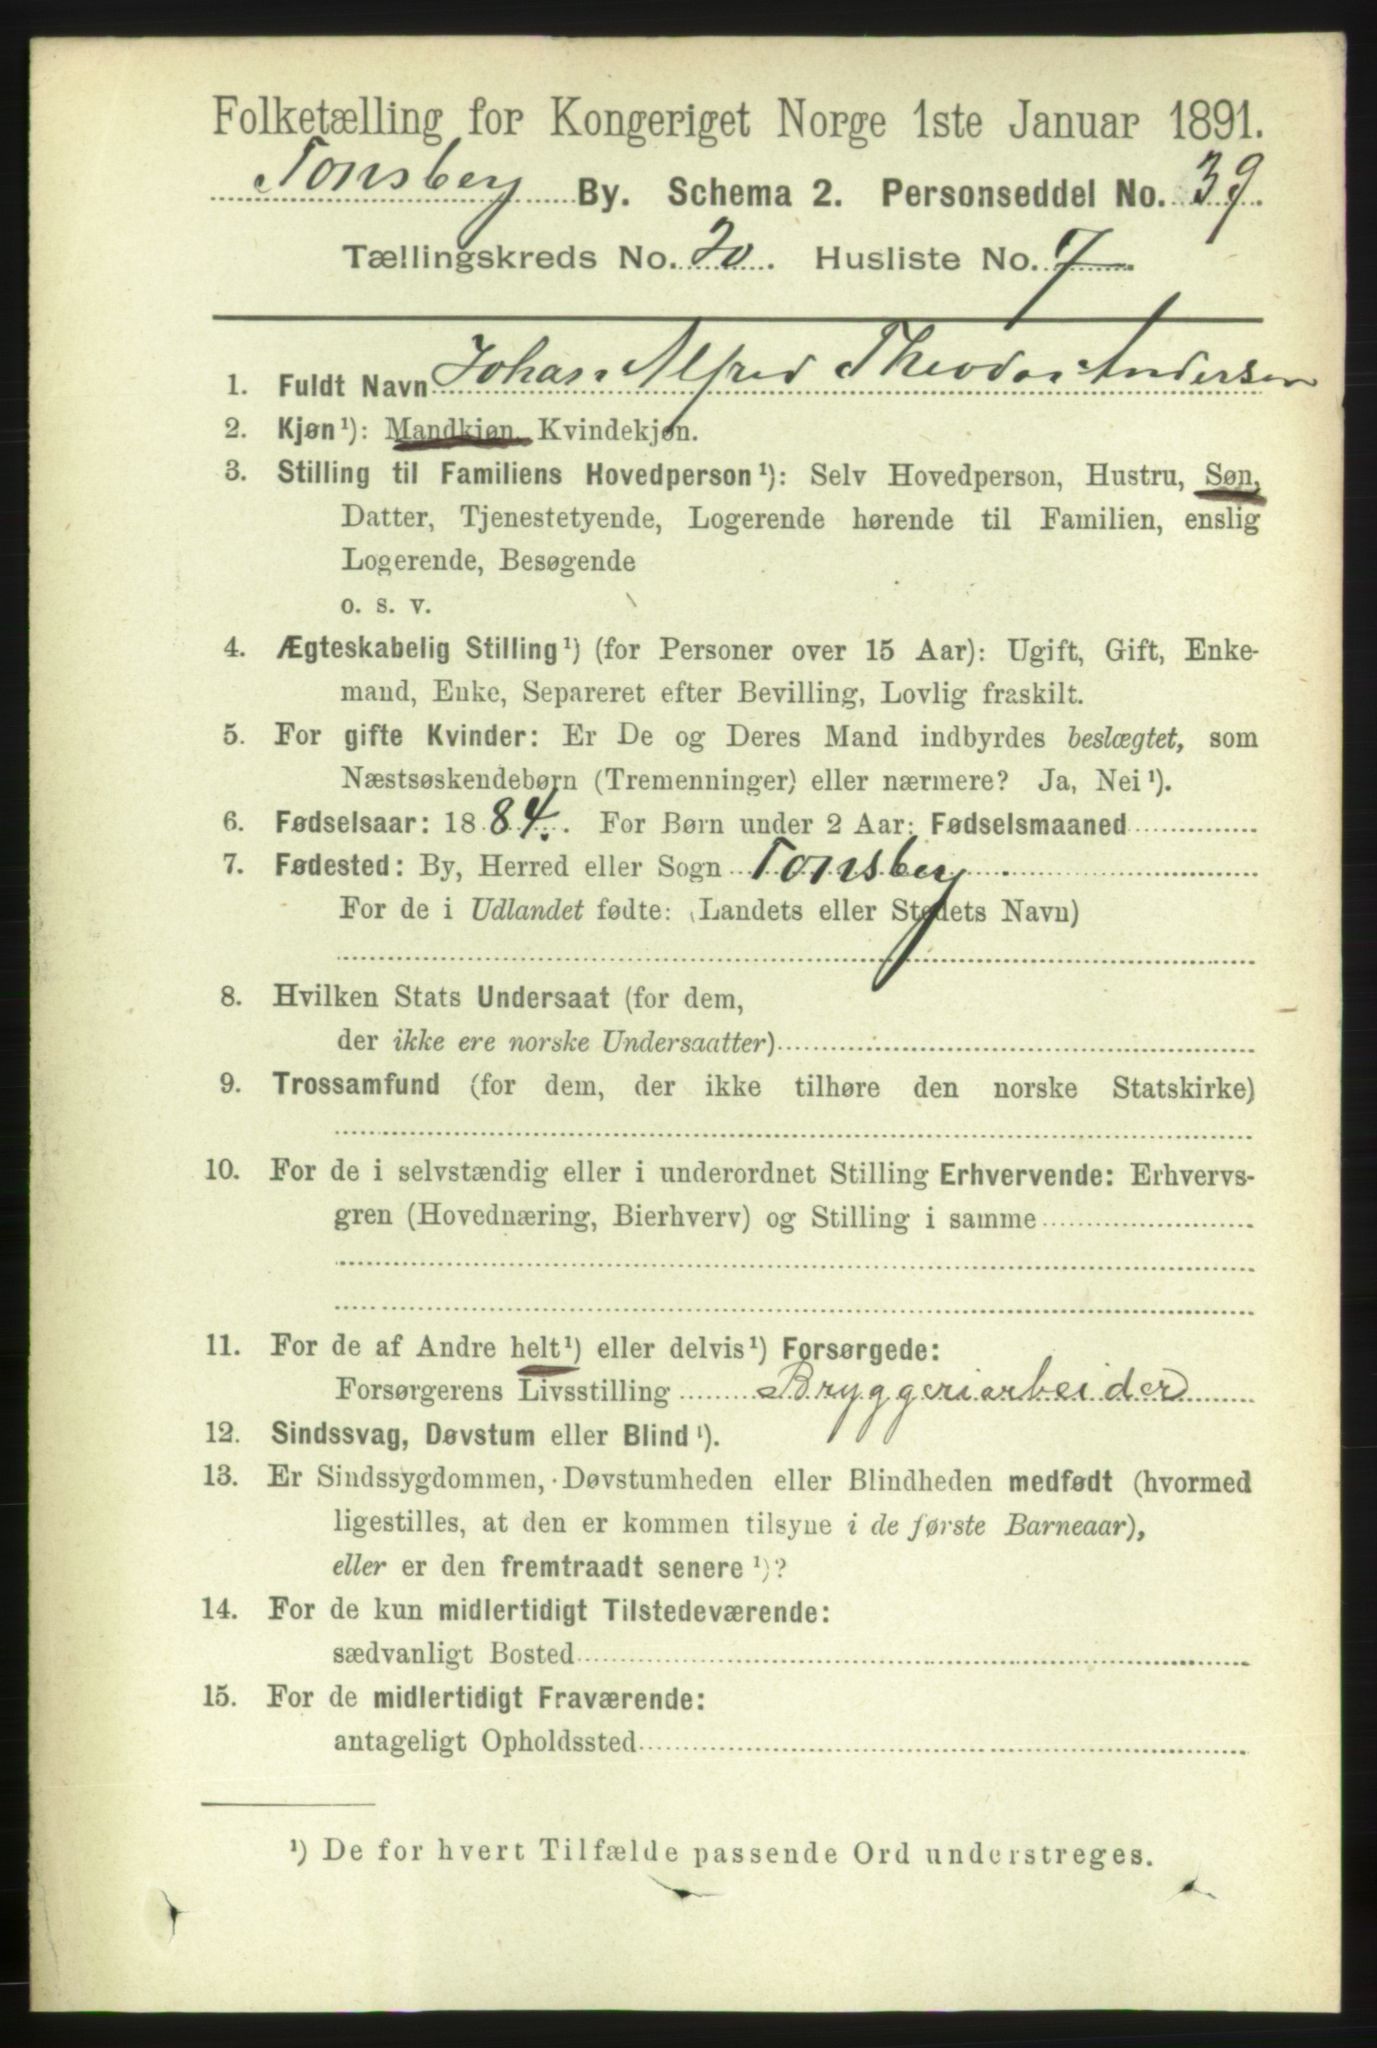 Folketælling for Kongeriget Norge 1ste Januar 1891.
Tonsberg By. Schema 2. Personseddel No. 39.
Tællingskreds No. 20. Husliste No. 7.
1. Fuldt Navn Johan Alfred Theodor Andersen
2. Kjøn¹): Mandkjøn, Kvindekjøn.
3. Stilling til Familiens Hovedperson¹): Selv Hovedperson, Hustru, Søn,
Datter, Tjenestetyende, Logerende hørende til Familien, enslig
Logerende, Besøgende
o. s. v.
4. Ægteskabelig Stilling¹) (for Personer over 15 Aar): Ugift, Gift, Enke-
mand, Enke, Separeret efter Bevilling, Lovlig fraskilt.
5. For gifte Kvinder: Er De og Deres Mand indbyrdes beslægtet, som
Næstsøskendebørn (Tremenninger) eller nærmere? Ja, Nei¹).
6. Fødselsaar: 1884. For Børn under 2 Aar: Fødselsmaaned
7. Fødested: By, Herred eller Sogn Tonsberg
For de i Udlandet fødte: (Landets eller Stedets Navn)
8. Hvilken Stats Undersaat (for dem,
der ikke ere norske Undersaatter)
9. Trossamfund (for dem, der ikke tilhøre den norske Statskirke)
10. For de i selvstændig eller i underordnet Stilling Erhvervende: Erhvervs-
gren (Hovednæring, Bierhverv) og Stilling i samme
11. For de af Andre helt¹) eller delvis¹) Forsørgede:
Forsørgerens Livsstilling Bryggeriarbeider
12. Sindssvag, Døvstum eller Blind¹).
13. Er Sindssygdommen, Døvstumheden eller Blindheden medfødt (hvormed
ligestilles, at den er kommen tilsyne i de første Barneaar),
eller er den fremtraadt senere¹)?
14. For de kun midlertidigt Tilstedeværende:
sædvanligt Bosted
15. For de midlertidigt Fraværende:
antageligt Opholdssted
¹) De for hvert Tilfælde passende Ord understreges.